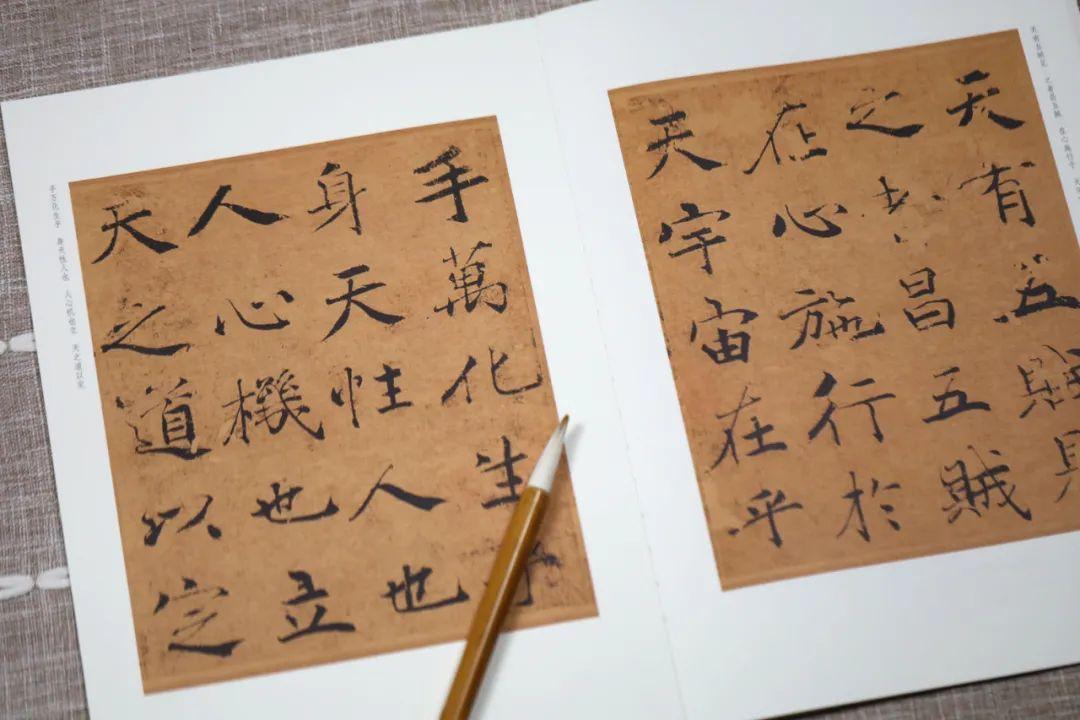 天有五贼见 之者昌五贼 在心施行于 天
天有五賊見
之者昌五賊
在心施行於
天宇宙在乎
手萬化生乎
身天性人也
人心機也立
天之道以定
手万化生乎 身天性人也 人心机也立 天之道以定